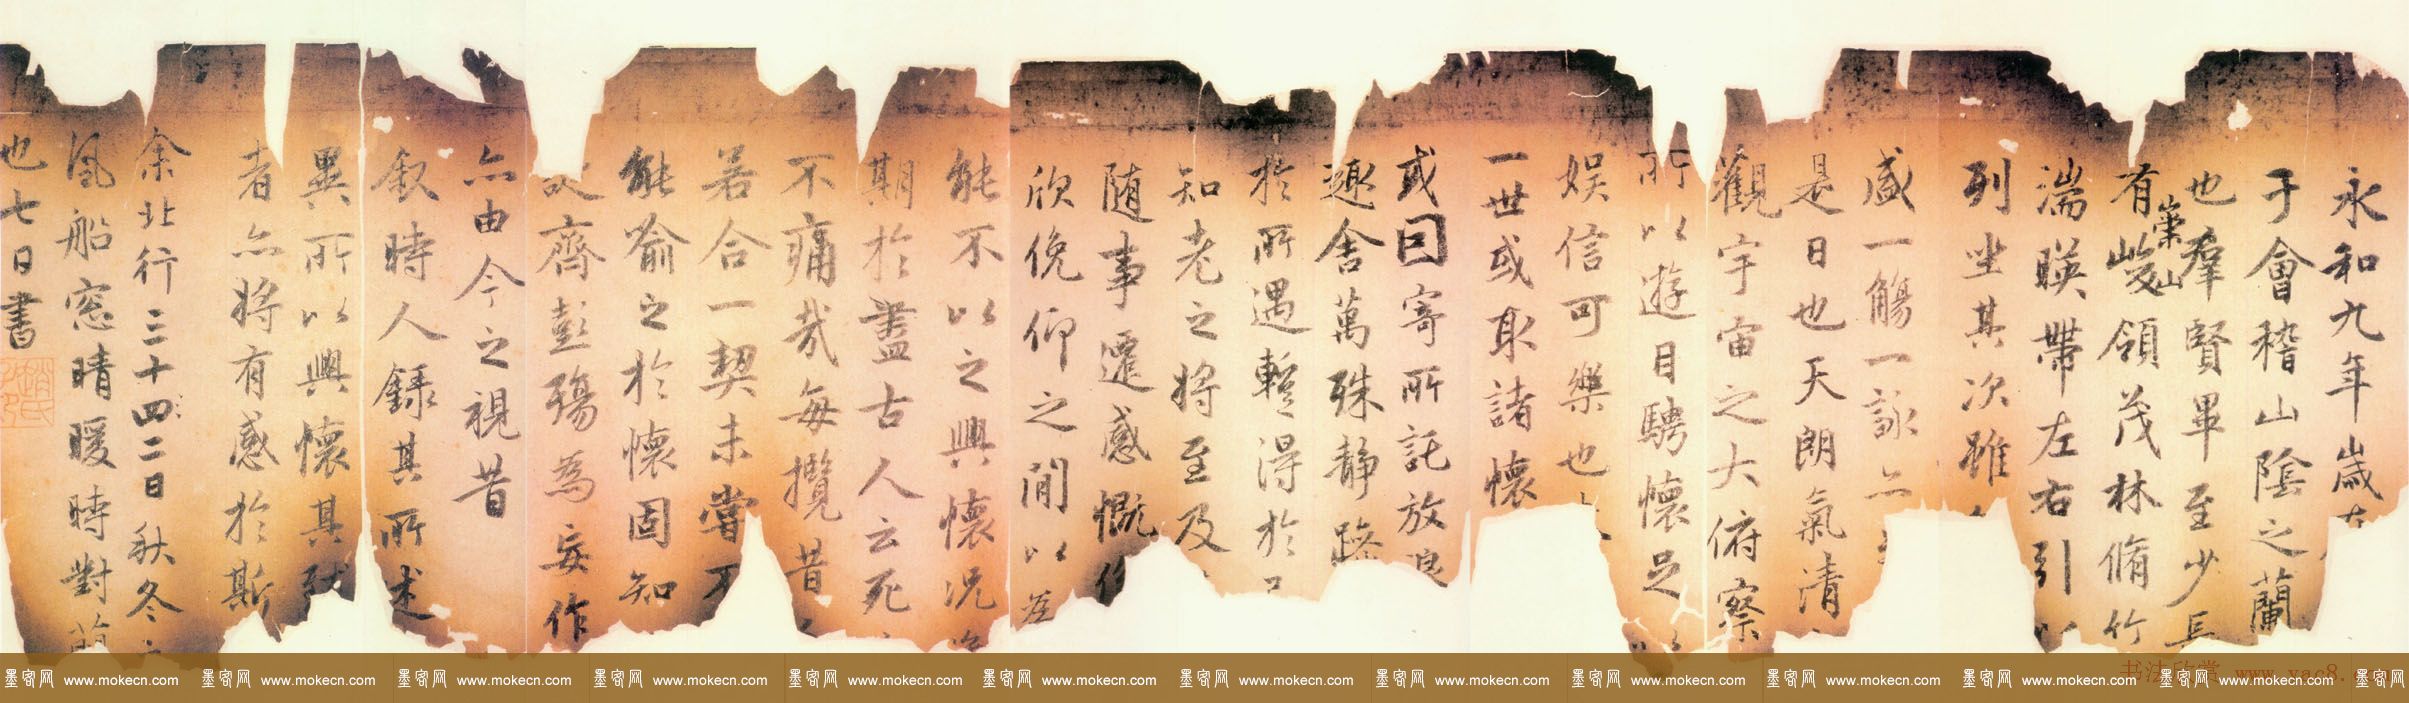 永和九年歲
于會稽山陰之蘭
也羣賢畢至少長
有崇山峻領茂林脩竹
湍暎帶左右引以
列坐其次雖
盛一觴一詠亦
是日也天朗氣清
觀宇宙之大俯察
所以遊目騁懷足以
娛信可樂也
一世或取諸懷
或因寄所託放浪
趣舍萬殊靜躁
於所遇暫得於
知老之將至及
隨事遷感慨係
欣俛仰之間以為
能不以之興懷況脩
期於盡古人云死
不痛哉每攬昔
若合一契未嘗不
能喻之於懷固知
誕齊彭殤為妄作
亦由今之視昔
敘時人錄其所述
異所以興懷其致
者亦將有感於斯
余北行三十二日秋冬
風船窓晴暖時對蘭
也七日書
趙氏子昂
书法欣赏 www.yac8.com
墨客网 www.mokecn.com 墨客网 www.mokecn.com 墨客网 www.mokecn.com 墨客网 www.mokecn.com 墨客网 www.mokecn.com 墨客网 www.mokecn.com 墨客网 www.mokecn.com 墨客网 www.mokecn.com 墨客网 www.mokecn.com 墨客网 www.mokecn.com 墨客网 www.mokecn.com 墨客网 www.mokecn.com 墨客网